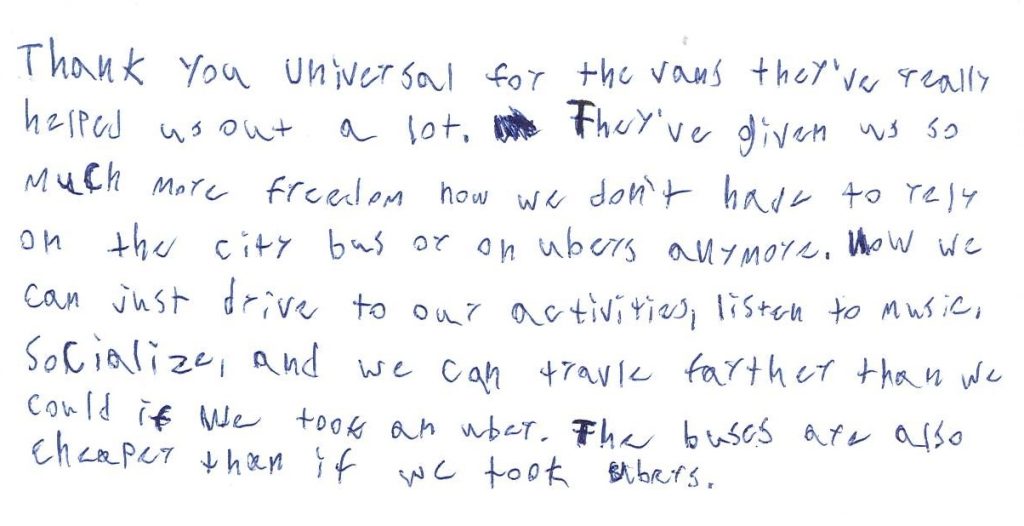 Thank you universal for the vans they've really
helped us out a lot. They've given us so
much more freedom now we don't have to rely
on the city bus or on ubers anymore. Now we
can just drive to our activities, listen to music,
socialize, and we can travle farther than we
could if we took an uber. The buses are also
cheaper than if we took ubers.